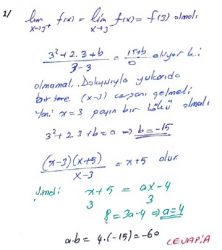 2/ lim x→3⁺ f(x) = lim x→3⁻ f(x) = f(3) olmalı
(3² + 2.3 + b)/(3-3) = (15+b)/0 oluyor ki
olmamalı. Dolayısıyla yukarıda
birtane (x-3) çarpanı gelmeli
Yani x=3 payın bir kökü olmalı
3² + 2.3 + b = 0 ⇒ b = -15
((x-3)(x+5))/(x-3) = x+5 olur
Şimdi x+5 = ax-4
3 3
8 = 3a-4 ⇒ a=4
a.b = 4.(-15) = -60
CEVAP: A